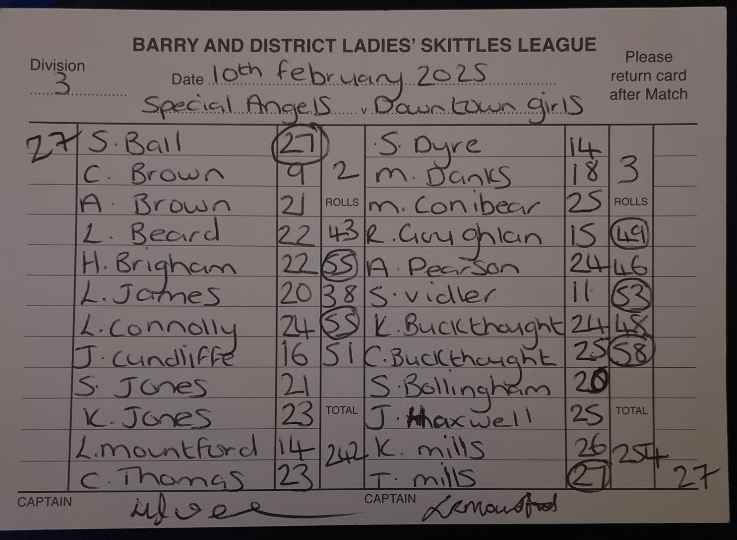 BARRY AND DISTRICT LADIES' SKITTLES LEAGUE
Division 3
Date 10th february 2025
Please return card after Match
Special Angels v Downtown girls
27 S. Ball 27 S. Dyre 14
C. Brown 9 2 M. Danks 18 3
A. Brown 21 ROLLS M. Conibear 25 ROLLS
L. Beard 22 43 R. Coughlan 15 49
H. Brigham 22 55 A. Pearson 24 46
L. James 20 38 S. Vidler 11 53
L. Connolly 24 55 K. Buckthought 24 48
J. Cundliffe 16 51 C. Buckthought 25 58
S. Jones 21 S. Bollingham 20
K. Jones 23 TOTAL J. Maxwell 25 TOTAL
L. mountford 14 242 K. mills 26 254
C. Thomas 23 T. mills 27 27
CAPTAIN CAPTAIN